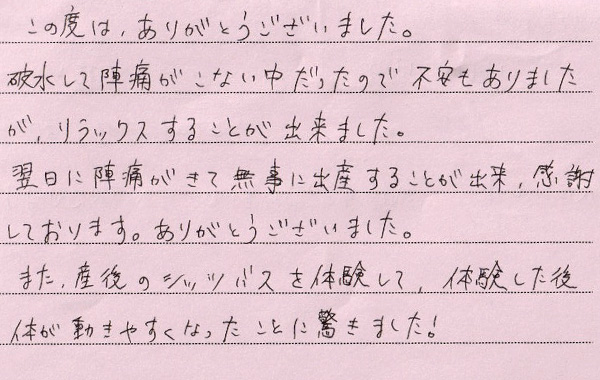 この度は、ありがとうございました。
破水して陣痛がこない中だったので不安もありました
が、リラックスすることが出来ました。
翌日に陣痛がきて無事に出産することが出来、感謝
しております。ありがとうございました。
また、産後のシッツバスを体験して、体験した後
体が動きやすくなったことに驚きました!